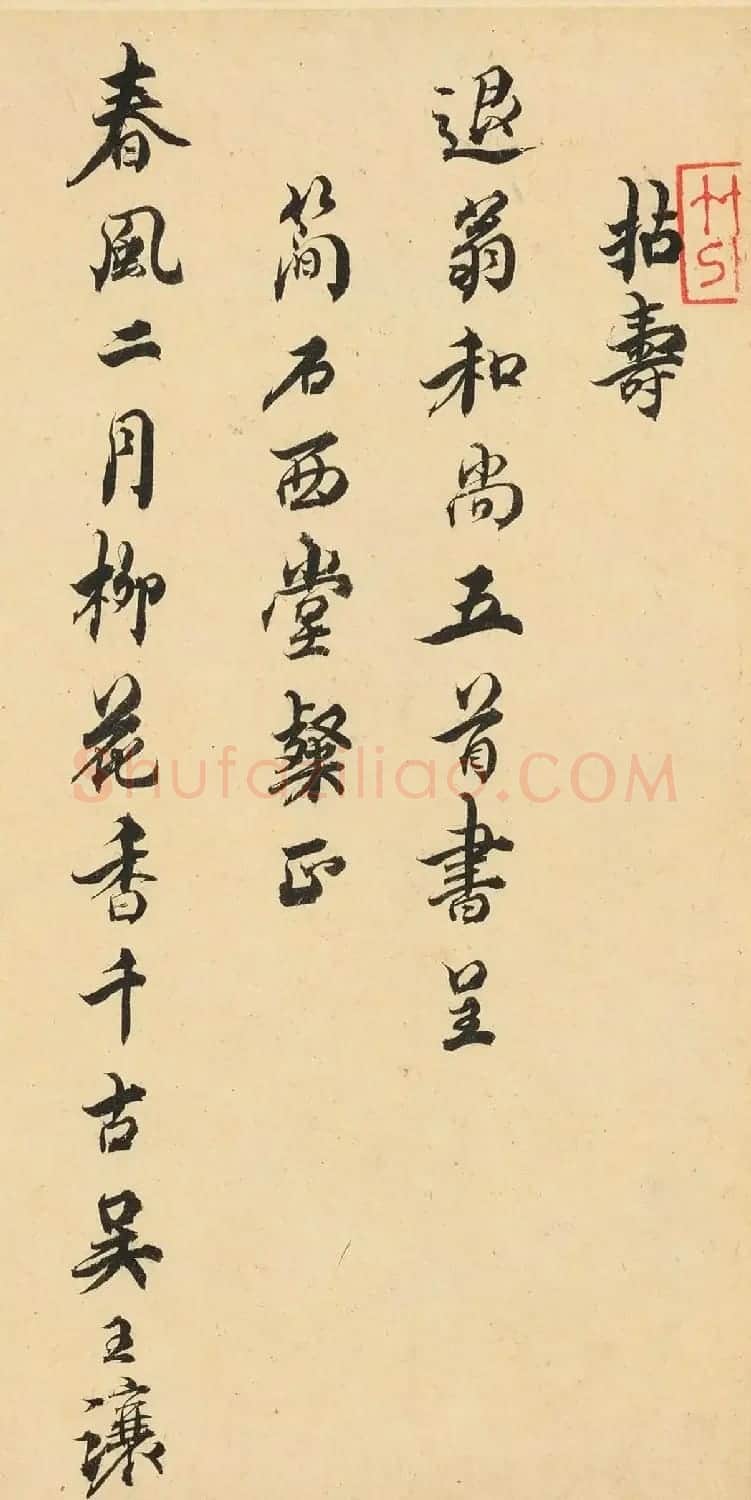 壽
退翁和尚五首書呈
簡石西堂粲正
春風二月柳花香千古吳王讓
Shufaziliao.COM